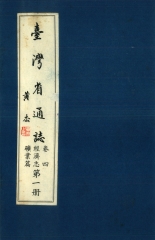 臺灣省通誌
黃杰
卷四
經濟志
礦業篇
第一冊